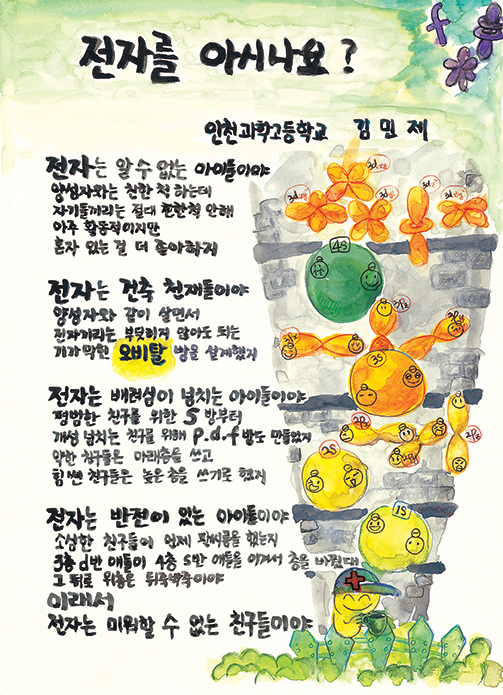 f
전자를 아시나요?
인천과학고등학교 김민제
전자는 알 수 없는 아이들이야
양성자와는 친한 척 하는데
자기들끼리는 절대 친한척 안해
아주 활동적이지만
혼자 있는 걸 더 좋아하지
전자는 건축 천재들이야
양성자와 같이 살면서
전자끼리는 부딪히지 않아도 되는
기가막힌 오비탈 방을 설계했지
전자는 배려심이 넘치는 아이들이야
평범한 친구를 위한 S 방부터
개성 넘치는 친구를 위해 p.d.f 방도 만들었지
약한 친구들은 아래층을 쓰고
힘쎈 친구들은 높은 층을 쓰기로 했지
전자는 반전이 있는 아이들이야
소심한 친구들이 언제 팔씨름을 했는지
3층 d반 애들이 4층 s반 애들을 이겨서 층을 바꿨대
그 뒤로 위층은 뒤죽박죽이야
이래서
전자는 미워할 수 없는 친구들이야
3d
3d
3d
3d
3d
4S
3Pz
3Px
3Py
3S
2Pz
2Px
2Py
2S
1S